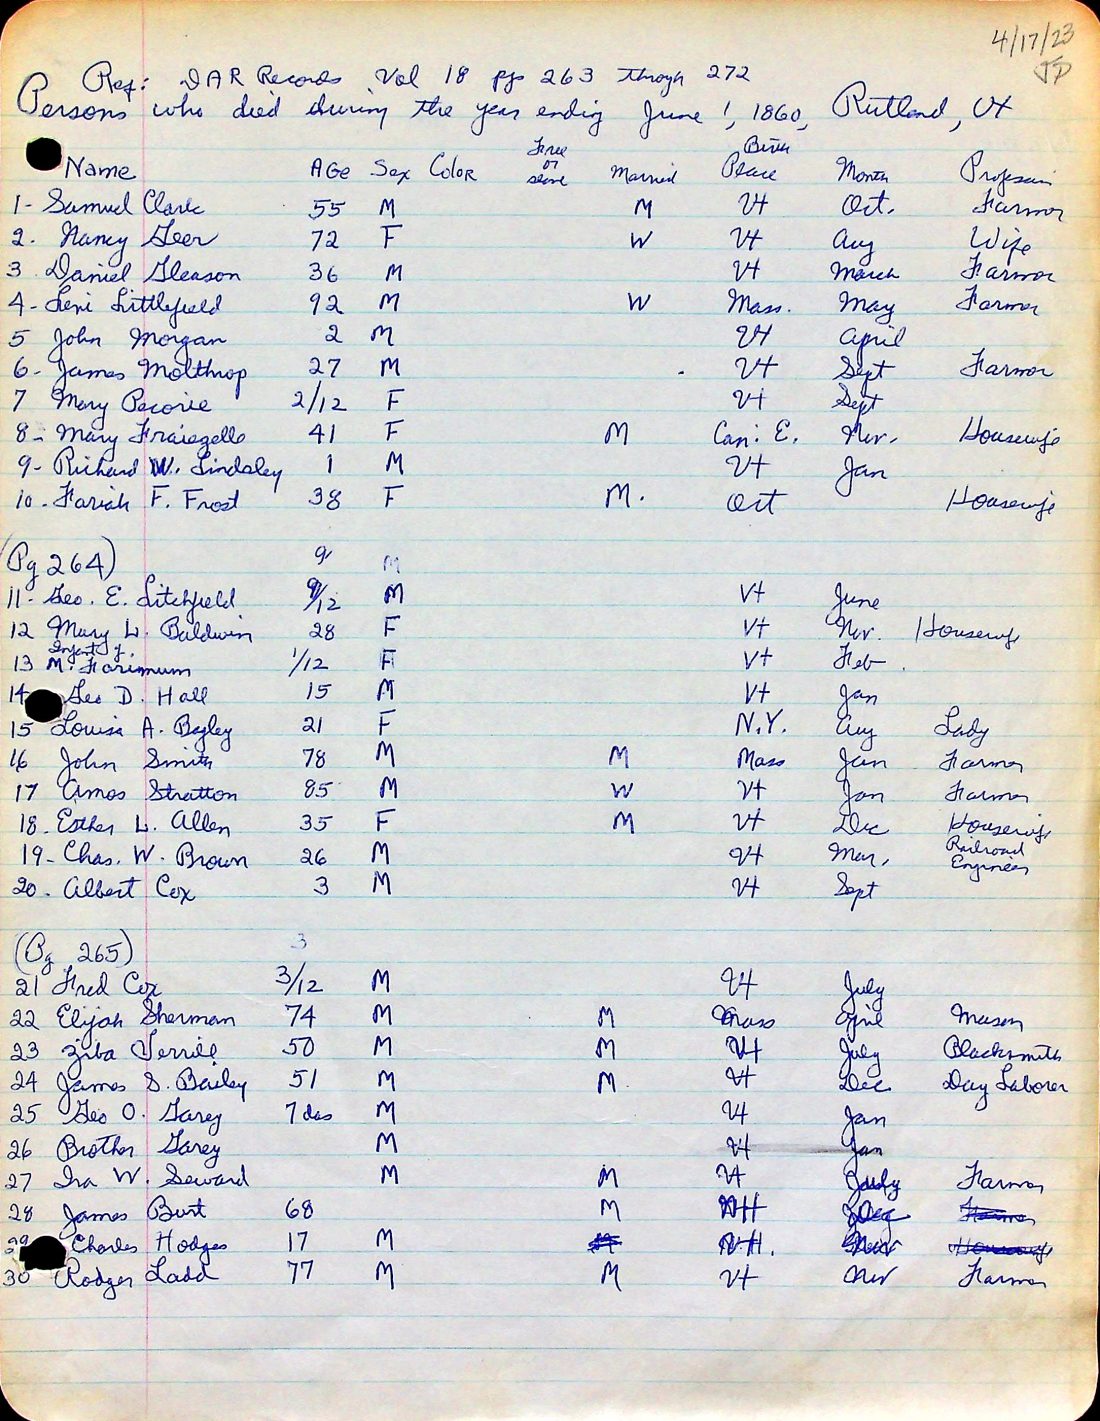 4/17/23
JP
Ref: DAR Records Vol 18 pgs 263 through 272
Persons who died during the year ending June 1, 1860, Rutland, Vt
Name Age Sex Color Free or slave Married Birth Place Month Profession
1- Samuel Clark 55 M M Vt Oct. Farmer
2. Nancy Geer 72 F W Vt Aug Wife
3. Daniel Gleason 36 M Vt March Farmer
4- Levi Littlefield 92 M W Mass. May Farmer
5 John Morgan 2 M Vt April
6- James Molthrop 27 M Vt Sept Farmer
7 Mary Pecorie 2/12 F Vt Sept
8- Mary Fraizelle 41 F M Can: E. Nov. Housewife
9- Richard W. Lindsley 1 M Vt Jan
10- Fariah F. Frost 38 F M. Oct Housewife
(Pg 264) 9 M
11- Geo. E. Litchfield 9/12 M Vt June
12 Mary L. Baldwin 28 F Vt Nov. Housewife
Infant of
13 M. Farimum 1/12 F Vt Feb.
14 Geo D. Hall 15 M Vt Jan
15 Louisa A. Bagley 21 F N.Y. Aug Lady
16 John Smith 78 M M Mass Jan Farmer
17 Amos Stratton 85 M W Vt Jan Farmer
18- Esther L. Allen 35 F M Vt Dec Housewife
19- Chas. W. Brown 26 M Vt Mar. Railroad Engineer
20- Albert Cox 3 M Vt Sept
(Pg 265) 3
21 Fred Cox 3/12 M Vt July
22 Elijah Sherman 74 M M Mass April Mason
23 Ziba Verrill 50 M M Vt July Blacksmith
24 James S. Bailey 51 M M. Vt Dec Day Laborer
25 Geo O. Garey 7 das M Vt Jan
26 Brother Garey M Vt Jan
27 Ira W. Seward M M Vt July Farmer
28 James Burt 68 M NH Dec Farmer
29 Charles Hodges 17 M M N.H. Nov Housewife
30 Rodger Ladd 77 M M Vt Nov Farmer